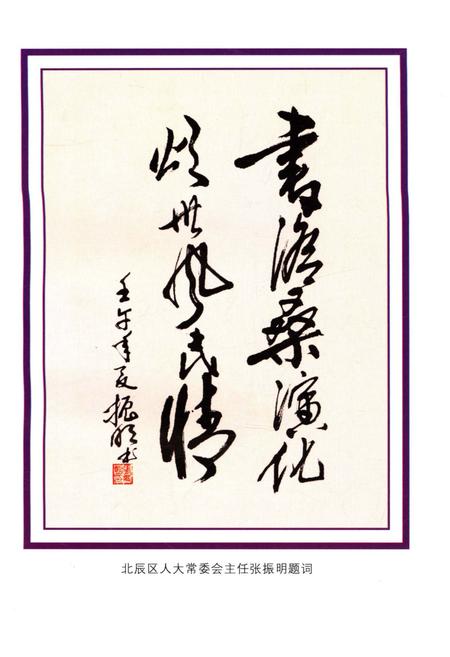 書滄桑演化
颂世风民情
壬午年夏振明书
北辰区人大常委会主任张振明题词